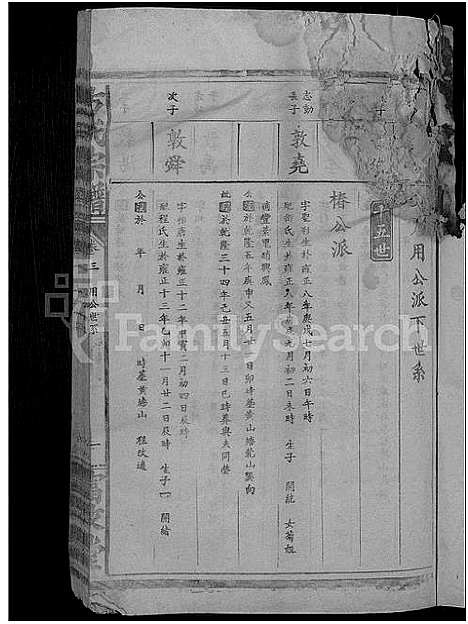 用公派下世系
十五世
椿公派
志勤
長子
敦堯
字聖彰生於雍正八年庚戌七月初六日午時
生於雍正八年庚戌九月初二日未時 生子 開統 女菊姐
適豐
公國於乾隆五年庚申又五月廿二日卯時墓黃山塘乾山巽向
國於乾隆三十四年己丑五月十三日巳時葬與夫同塋
次子
敦舜
生於雍正十二年甲寅二月初四日辰時
程氏生於雍正十三年乙卯十一月廿二日辰時 生子一 開緒
公國於 年 月 日 時墓黃塘山 程改適
氏宗譜
卷三 用公世系
一
FamilySearch